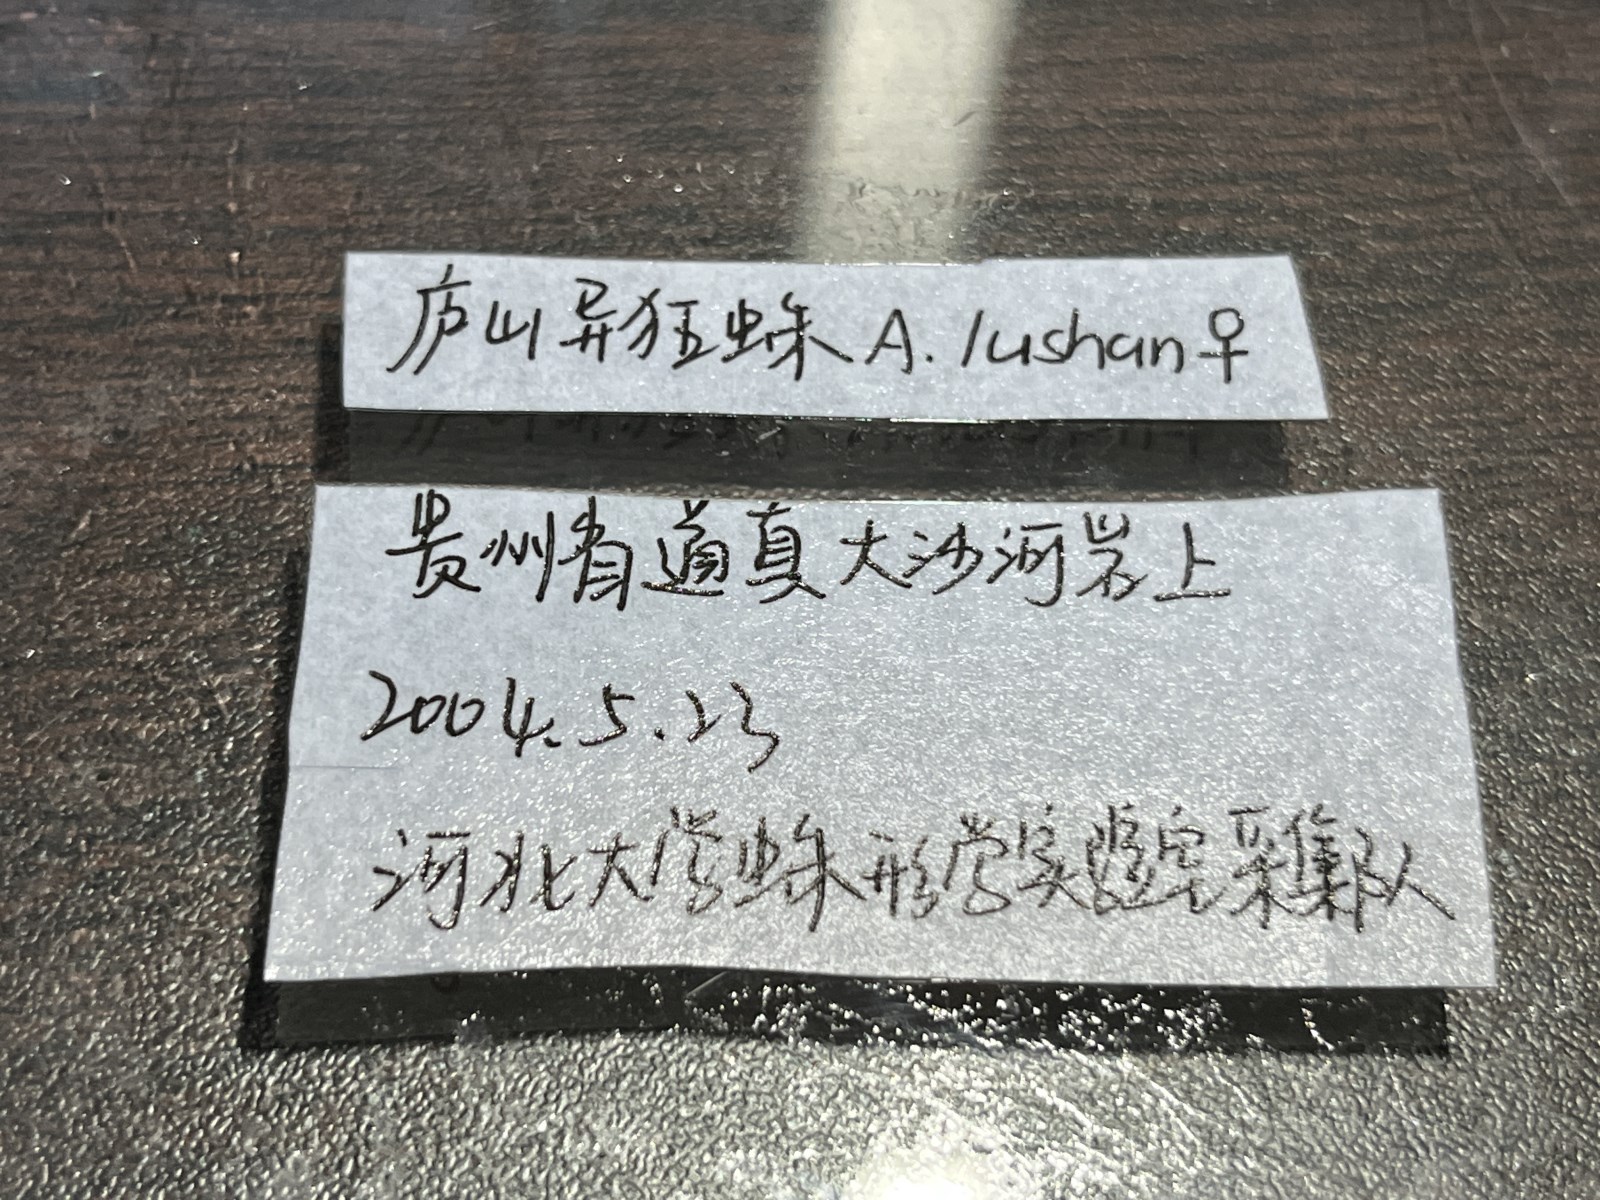 庐山异狂蛛 A. lushan♀
贵州省道真大沙河岩上
2004.5.23
河北大学蛛形学实验室采集队